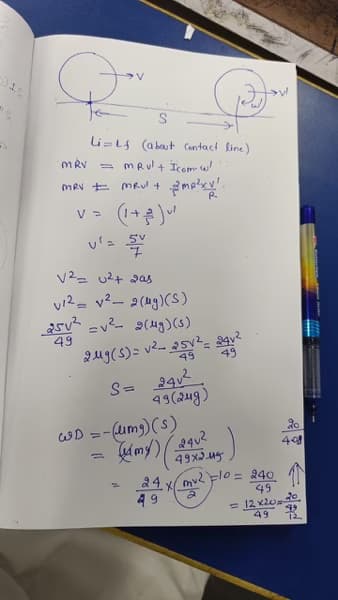 →v →v'
w'
S
Li = Lf (about contact line)
mRV = mRV' + Icom w'
mRV = mRV' + 2/5 mR² × v'/R
V = (1 + 2/5) v'
v' = 5v/7
V² = u² + 2as
v'² = v² - 2(μg)(S)
25v²/49 = v² - 2(μg)(S)
2μg(S) = v² - 25v²/49 = 24v²/49
S = 24v²/49(2μg)
WD = -(μmg)(S)
= (μmg)(24v²/49×2μg)
= 24/49 × (mv²/2) = 10 = 240/49
= 12×20/49 = 20/49/12
20